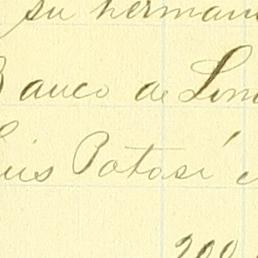 su herman
Banco de Lon
Luis Potosí
200